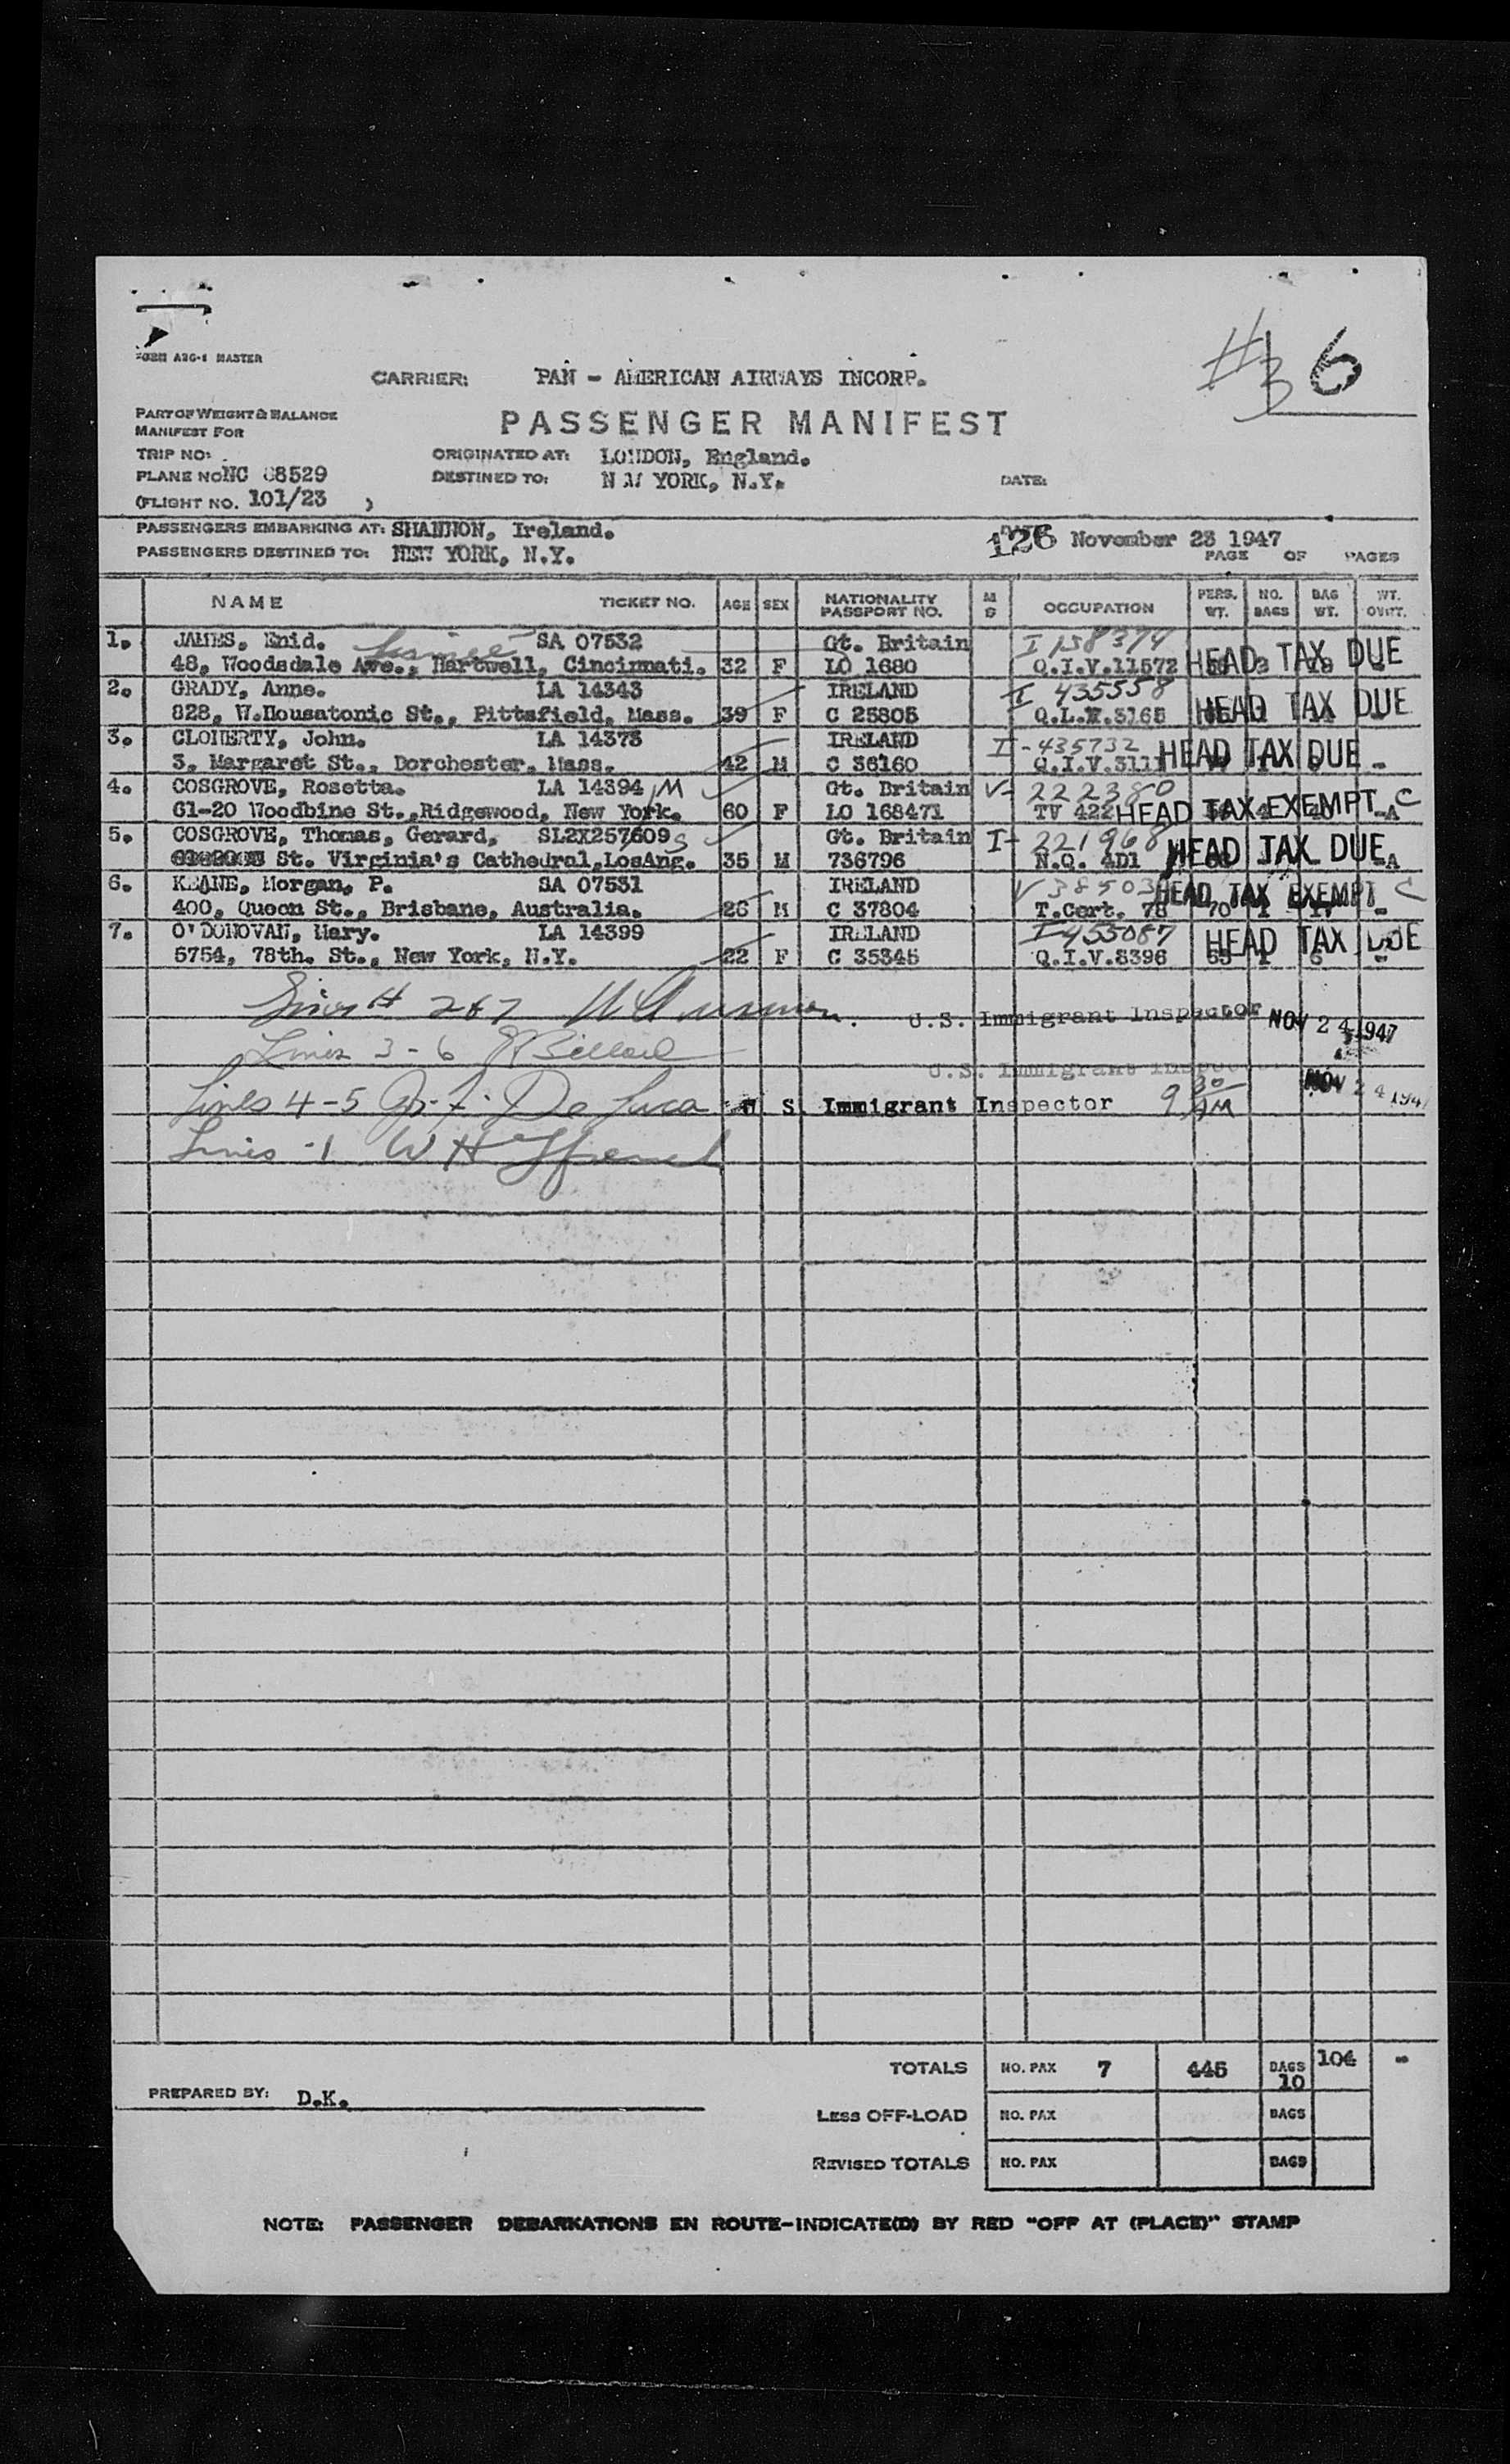 #3 6
FORM ARG-1 MASTER
CARRIER: PAN - AMERICAN AIRWAYS INCORP.
PART OF WEIGHT & BALANCE
MANIFEST FOR
PASSENGER MANIFEST
TRIP NO: ORIGINATED AT: LONDON, England.
PLANE NO NC 88529 DESTINED TO: NEW YORK, N.Y. DATE:
(FLIGHT NO. 101/23 )
PASSENGERS EMBARKING AT: SHANNON, Ireland. 126 November 23 1947
PASSENGERS DESTINED TO: NEW YORK, N.Y. PAGE OF PAGES
NAME TICKET NO. AGE SEX NATIONALITY PASSPORT NO. M S OCCUPATION PERS. WT. NO. BAGS BAG WT. WT. OVWT.
1. JAMES, Enid. SA 07532 Gt. Britain I 158374
48, Woodsdale Ave., Hartwell, Cincinnati. 32 F LO 1680 Q.I.V.11572 HEAD TAX DUE
2. GRADY, Anne. LA 14343 IRELAND I 435558
828, W.Housatonic St., Pittsfield, Mass. 39 F C 25805 3165 HEAD TAX DUE
3. CLOHERTY, John. LA 14373 IRELAND I-435732
3, Margaret St., Dorchester, Mass. 42 M C 36160 Q.I.V.3111 HEAD TAX DUE -
4. COSGROVE, Rosetta. LA 14394 M Gt. Britain V-222380
61-20 Woodbine St.,Ridgewood, New York. 60 F LO 168471 TV 422 HEAD TAX EXEMPT C -A
5. COSGROVE, Thomas, Gerard, SL2X257609 S Gt. Britain I-221968
St. Virginia's Cathedral,LosAng. 35 M 736796 N.Q. 4D1 HEAD TAX DUE -A
6. KEANE, Morgan, P. SA 07531 IRELAND V 38503 HEAD TAX EXEMPT C
400, Queen St., Brisbane, Australia. 26 M C 37804 T.Cert. 78 70 1 17 -
7. O'DONOVAN, Mary. LA 14399 IRELAND I-455087
5754, 78th. St., New York, N.Y. 22 F C 35345 Q.I.V.8396 65 1 6 - HEAD TAX DUE
2 & 7 U.S. Immigrant Inspector NOV 24 1947
Lines 3-6
U.S. Immigrant Inspector
Lines 4-5 De Luca U S. Immigrant Inspector 9 30 AM NOV 24 1947
Lines -1 W H
TOTALS NO. PAX 7 445 BAGS 10 104 -
PREPARED BY: D.K.
LESS OFF-LOAD NO. PAX BAGS
REVISED TOTALS NO. PAX BAGS
NOTE: PASSENGER DEBARKATIONS EN ROUTE-INDICATE(D) BY RED "OFF AT (PLACE)" STAMP